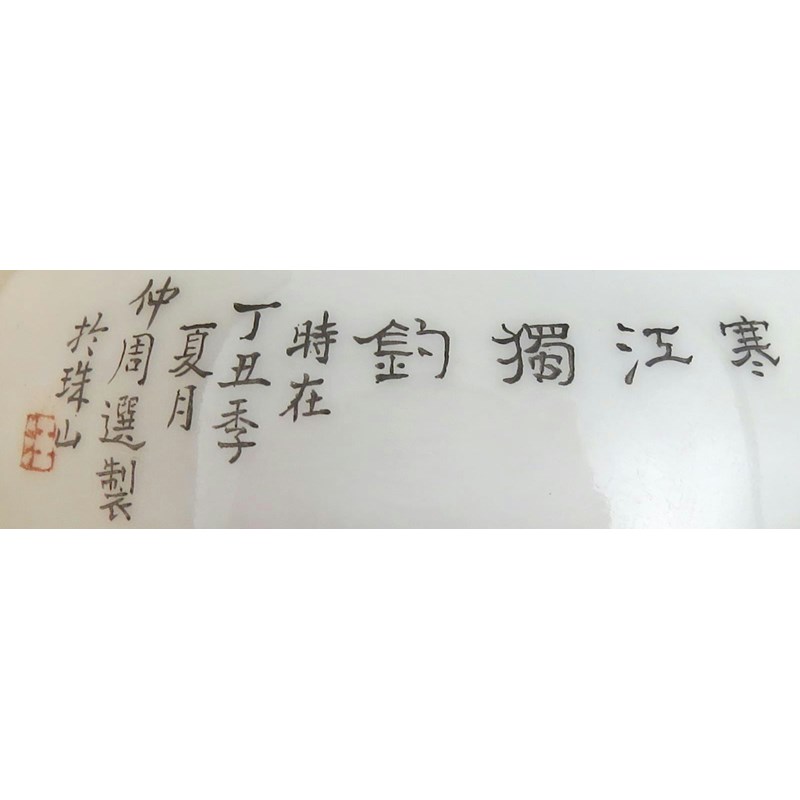 寒江獨釣
時在
丁丑季
夏月
仲周選製
於珠山